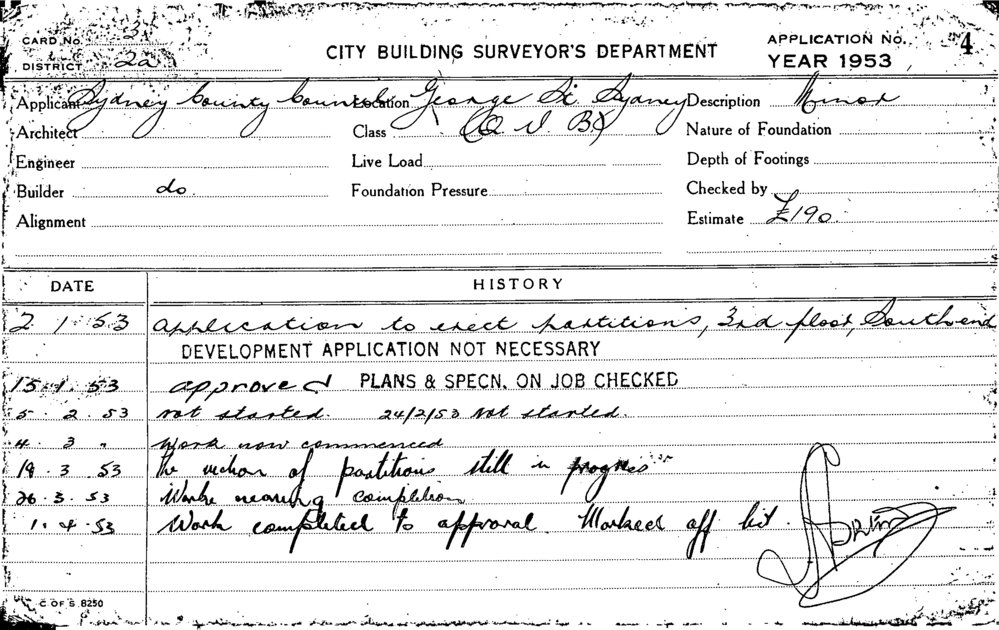 CARD No. 3
DISTRICT 2a
CITY BUILDING SURVEYOR'S DEPARTMENT
APPLICATION NO. 4
YEAR 1953
Applicant Sydney County Council Location George St Sydney Description Minor
Architect Class (Q V B) Nature of Foundation
Engineer Live Load Depth of Footings
Builder do Foundation Pressure Checked by
Alignment Estimate £190
DATE HISTORY
2 1 53 Application to erect partitions, 3rd floor, South end
DEVELOPMENT APPLICATION NOT NECESSARY
15 1 53 approved PLANS & SPECN. ON JOB CHECKED
5 . 2 . 53 not started. 24/2/53 Not started.
4 . 3 " Work now commenced
19 . 3 53 The erection of partitions still in progress
26 . 3 . 53 Work nearing completion
1 . 4 . 53 Work completed to approval. Marked off list.
C OF S 8250